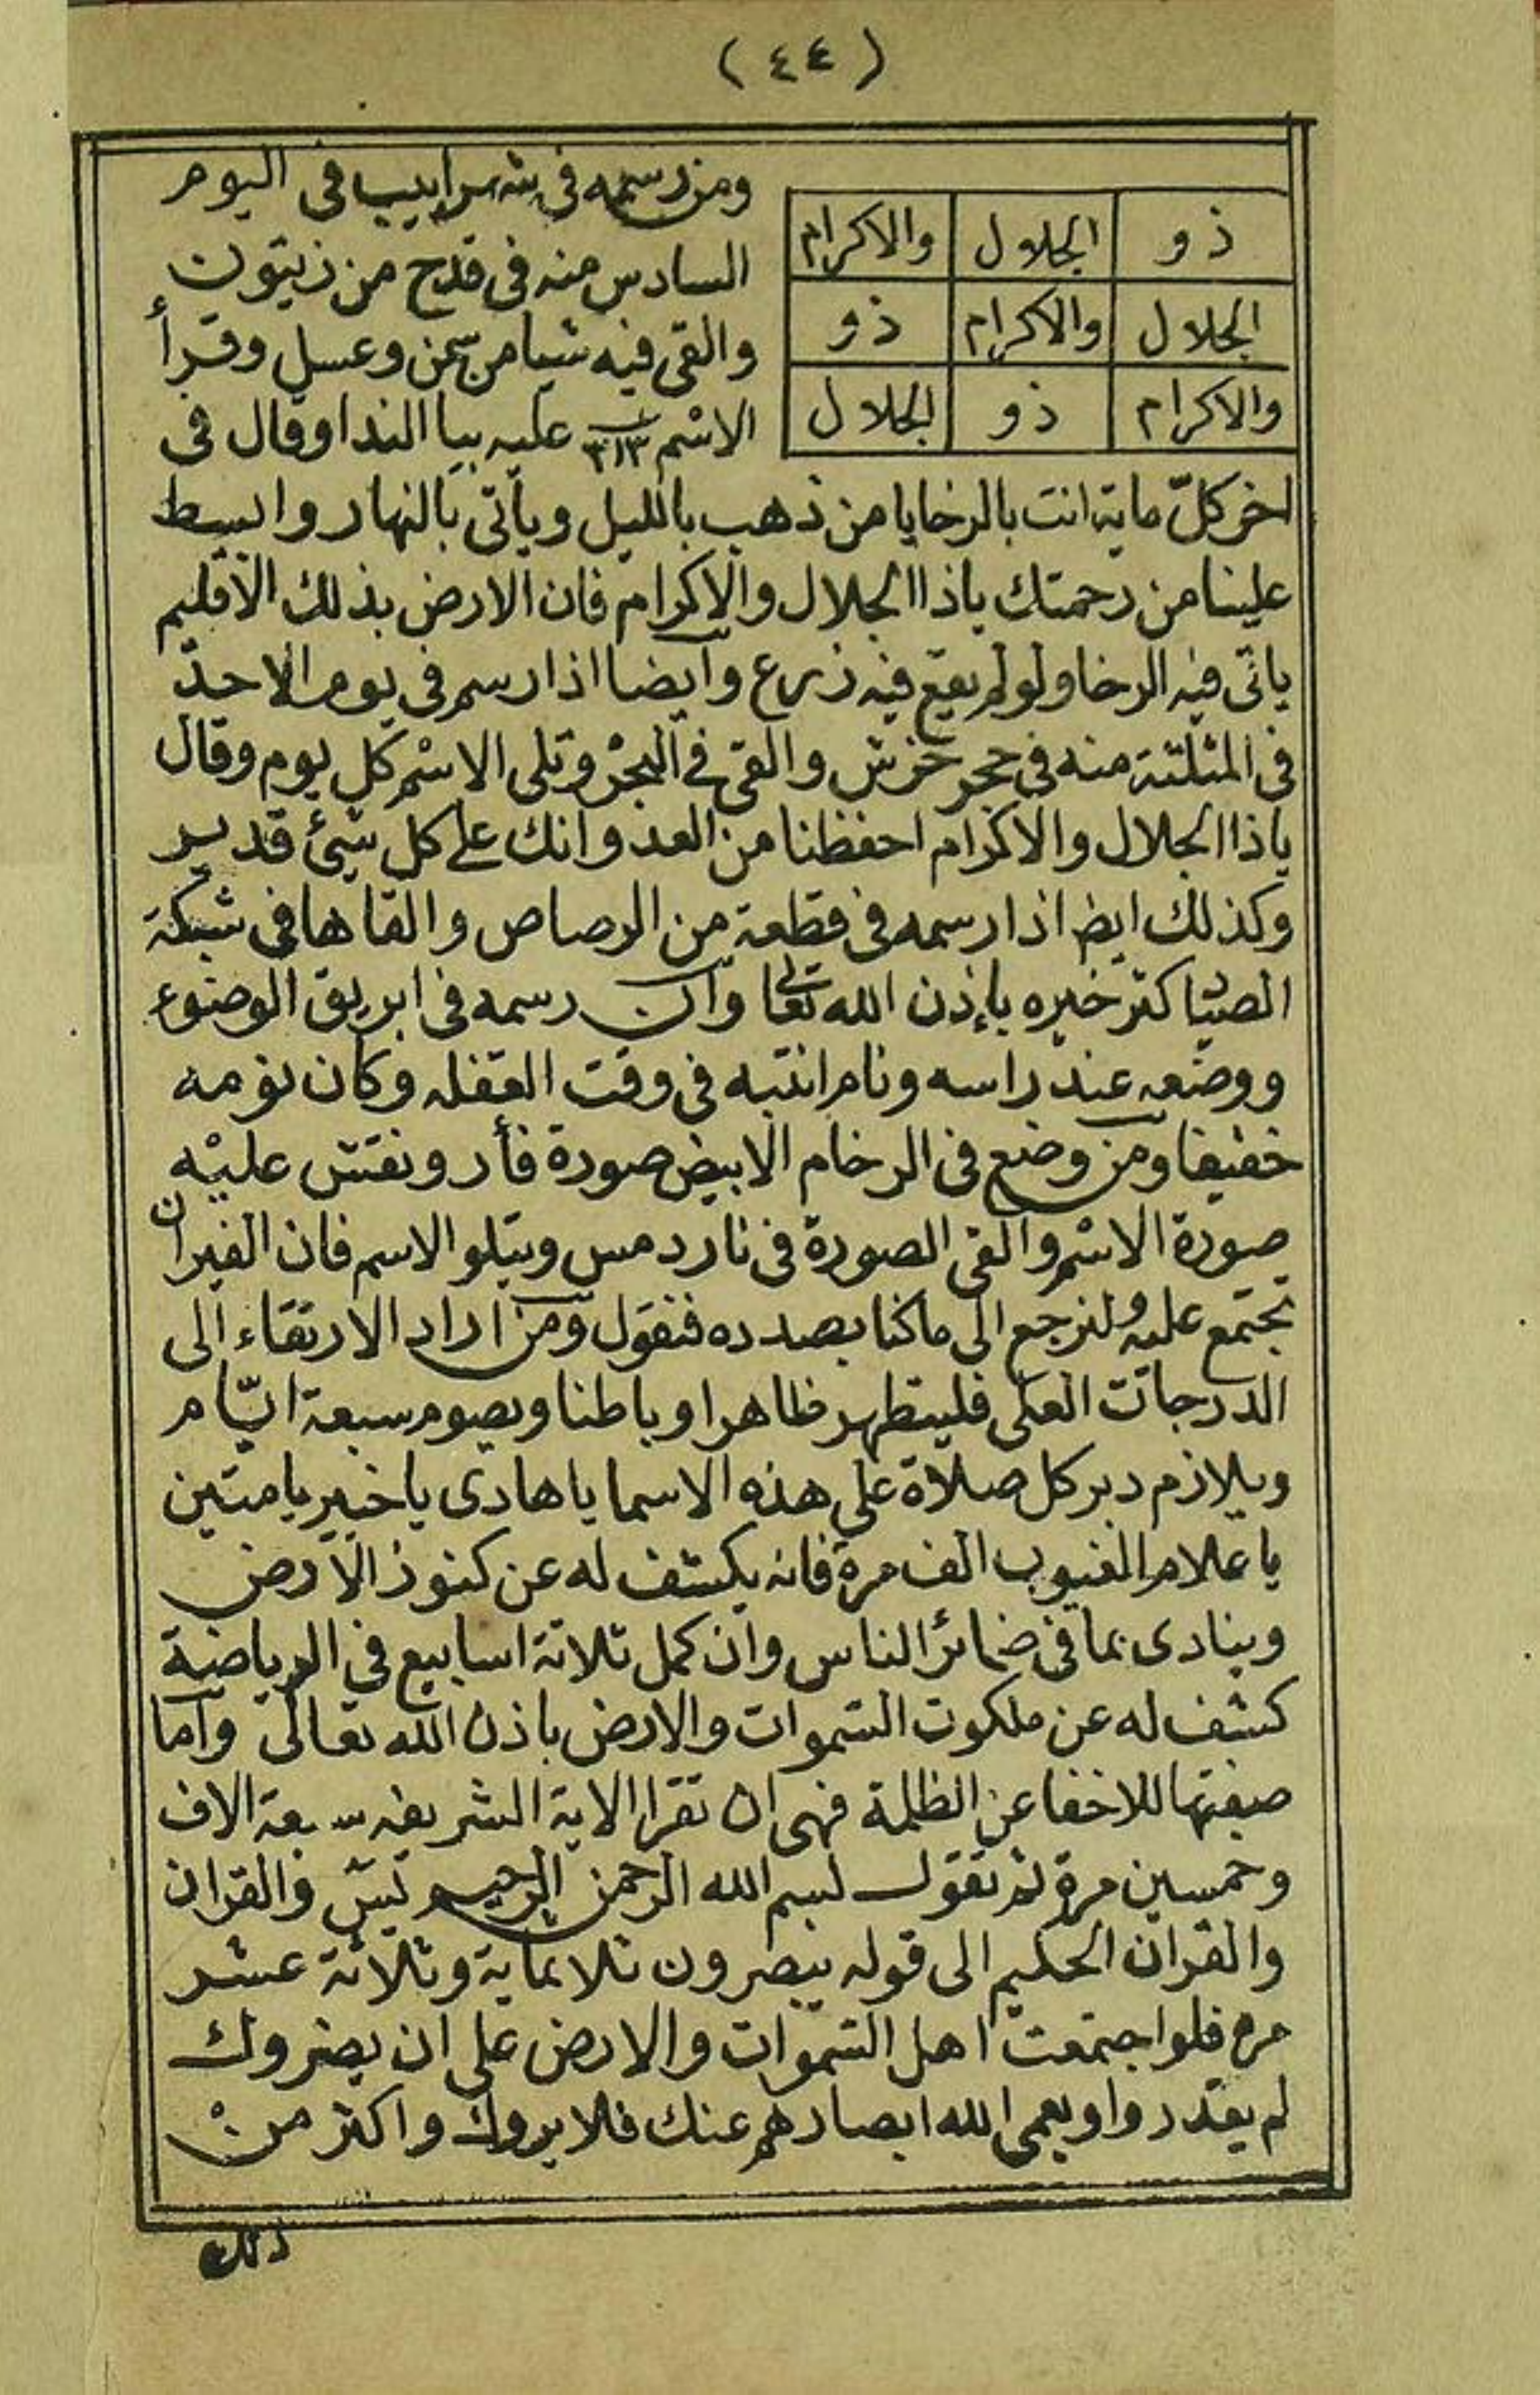 (٤٤)
ذو الجلال والاكرام
الجلال والاكرام ذو
والاكرام ذو الجلال
ومن رسمه فى شهر ابيب فى اليوم
السادس منه فى قدح من زيتون
والقى فيه شيا من سمن وعسل وقرأ
الاسم ٣١٣ عليه بيا الندا وقال فى
اخر كلّ ماية انت بالرخا يا من ذهب بالليل وياتى بالنهار وابسط
علينا من رحمتك ياذا الجلال والاكرام فان الارض بذلك الاقليم
ياتى فيه الرخا ولو لم يقع فيه زرع وايضا اذا رسم فى يوم الاحد
فى المثلثة منه فى حجر خرش والقى فى البحر وتلى الاسم كل يوم وقال
ياذا الجلال والاكرام احفظنا من العدو انك على كل شئ قدير
وكذلك ايض اذا رسمه فى قطعة من الرصاص والقاها فى شبكة
الصياد كثر خيره بإذن الله تعالى وان رسمه فى ابريق الوضوء
ووضعه عند راسه ونام انتبه فى وقت الغفله وكان نومه
خفيفا ومن وضع فى الرخام الابيض صورة فأر ونقش عليه
صورة الاسم والقى الصورة فى نار دمس ويتلو الاسم فان الفيران
تجتمع عليه ولنرجع الى ما كنا بصدده فنقول ومن اراد الارتقاء الى
الدرجات العلى فليتطهر ظاهرا وباطنا ويصوم سبعة ايّام
ويلازم دبر كل صلاة على هذه الاسما يا هادى يا خبير يا متين
يا علام الغيوب الف مرة فانه يكشف له عن كنوز الارض
وينادى بما فى ضمائر الناس وان كمل ثلاثة اسابيع فى الرياضة
كشف له عن ملكوت السموات والارض باذن الله تعالى واما
صفتها للاخفا عن الظلمة فهى ان تقرا الاية الشريفه سبعة الاف
وخمسين مرة ثم تقول بسم الله الرحمن الرحيم يس والقران
والقران الحكيم الى قوله يبصرون ثلاثماية وثلاثة عشر
مره فلو اجتمعت اهل السموات والارض على ان يضروك
لم يقدروا ويعمى الله ابصارهم عنك فلا يروك واكثر من
ذلك